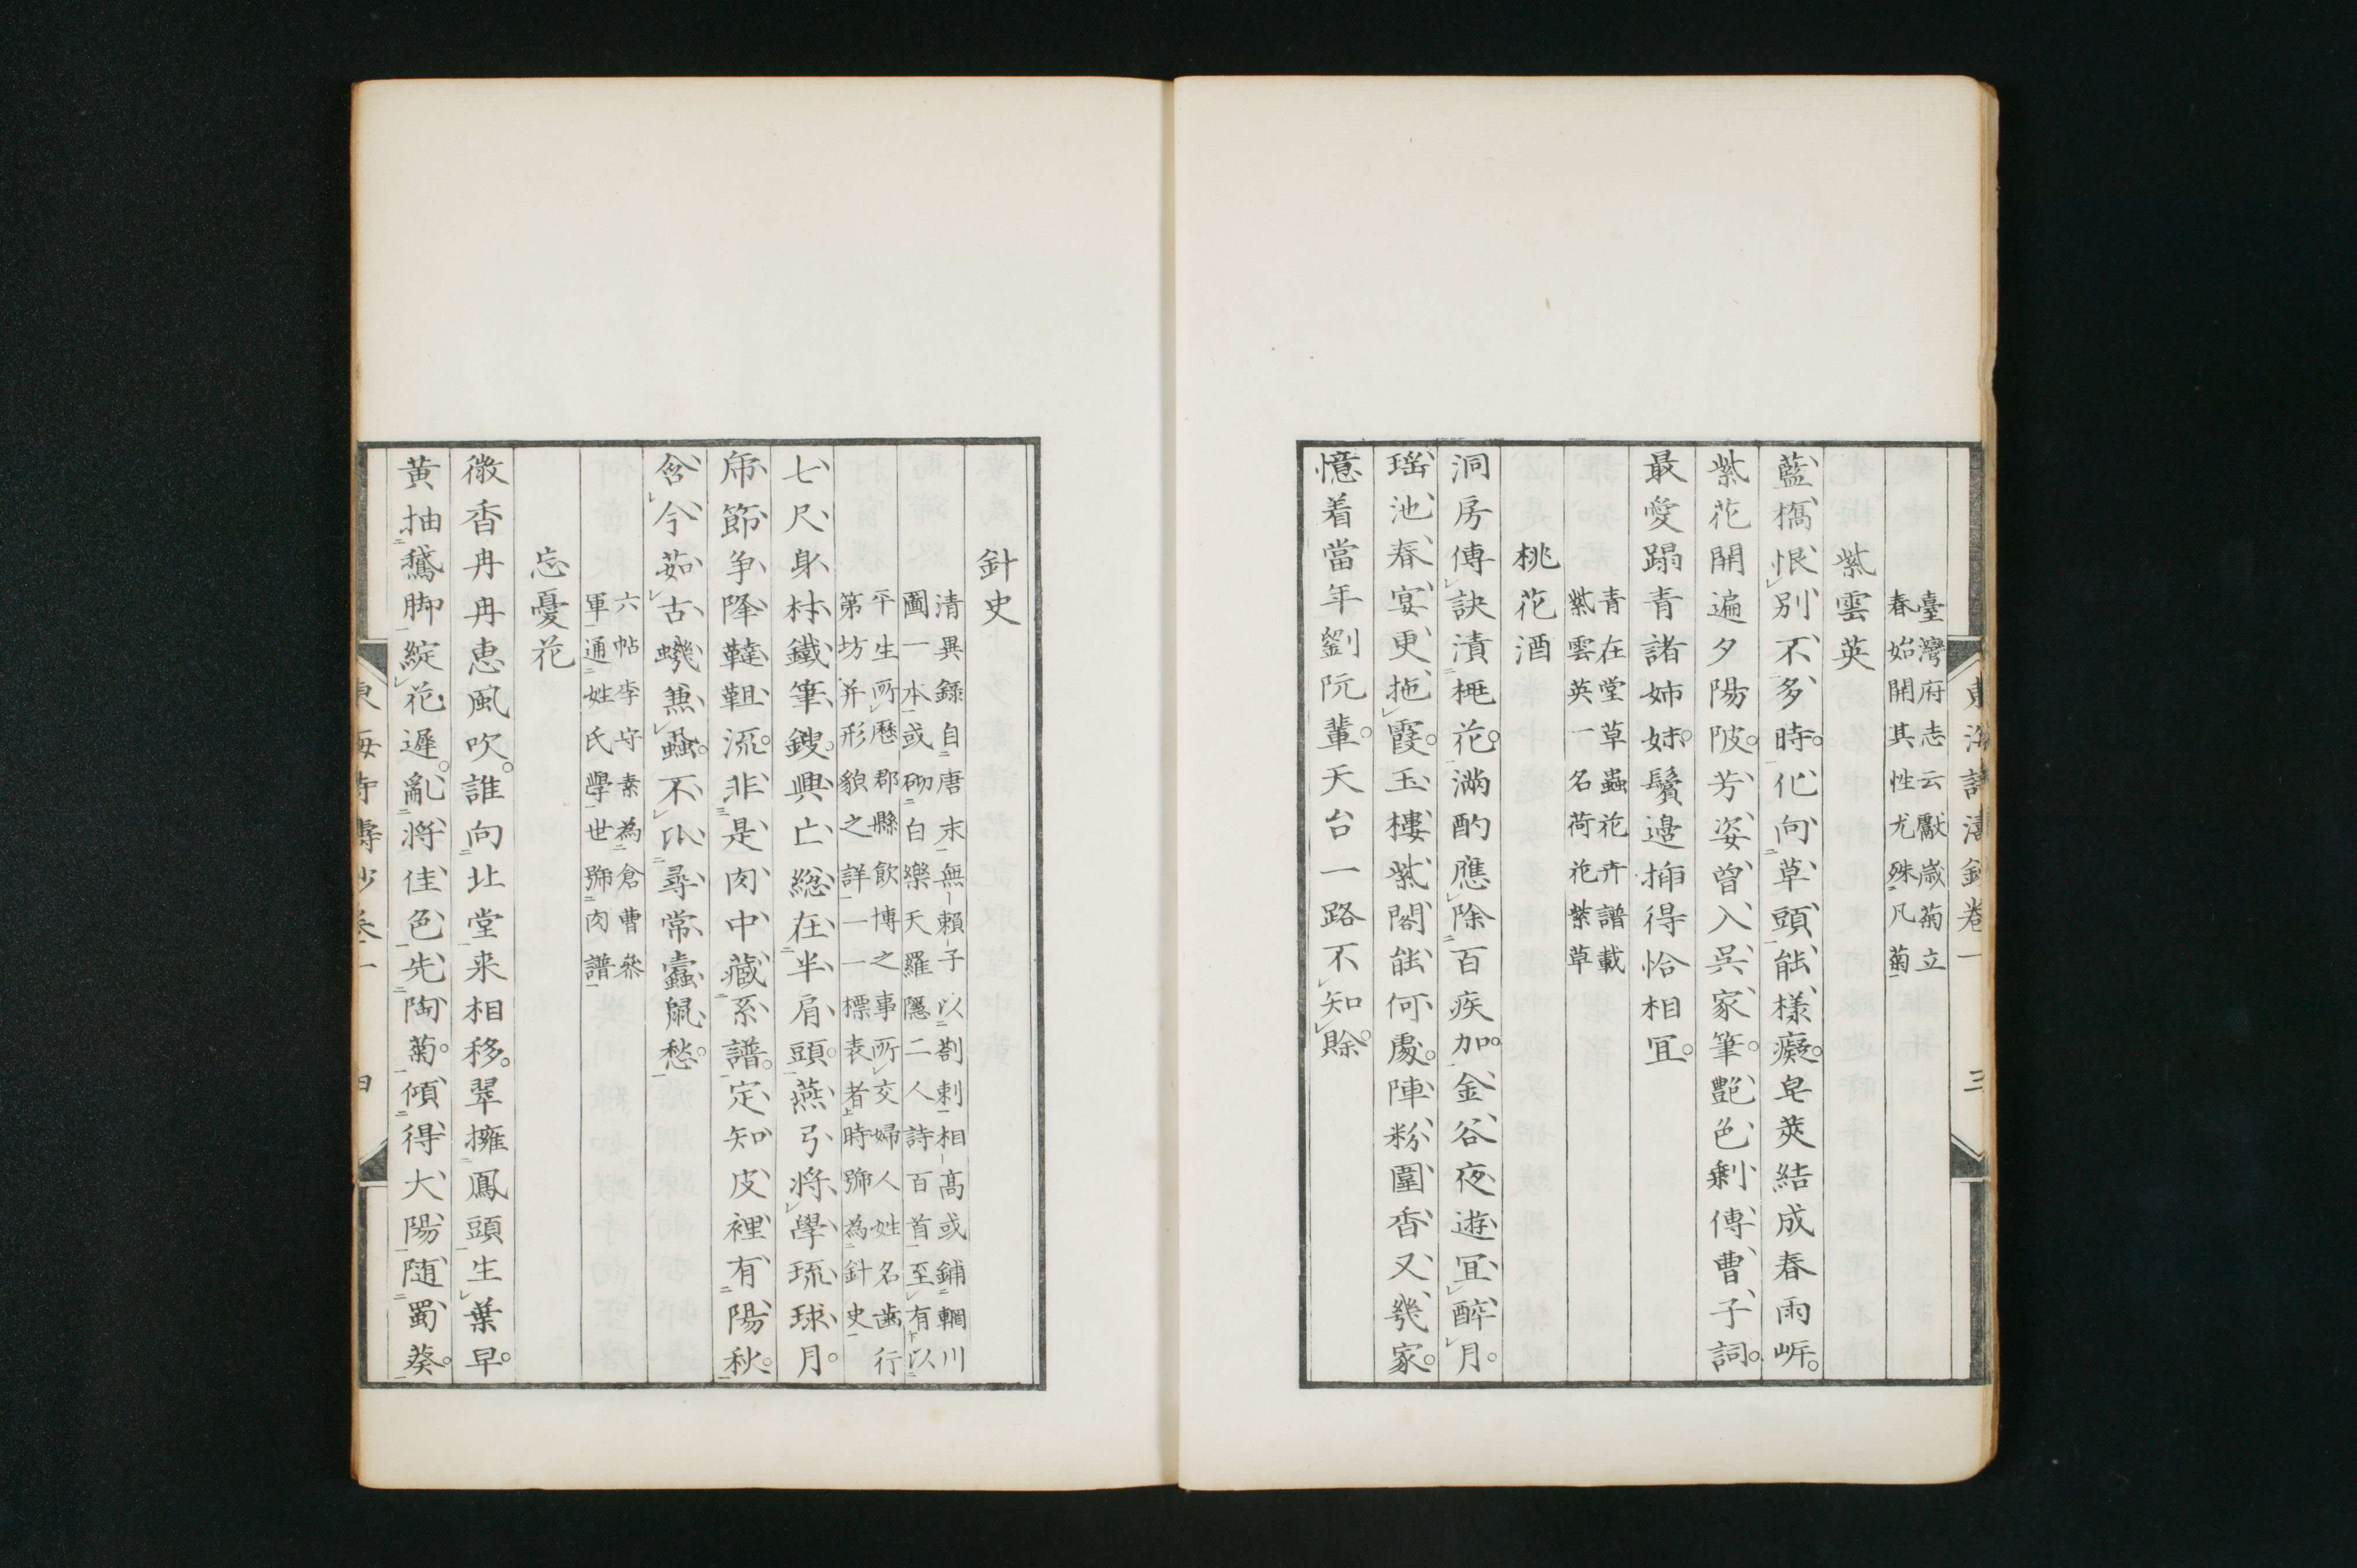 臺灣府志云獻歲菊立
春始開其性尤殊凡菊
紫雲英
藍橋恨別不多時。化向草頭能樣癡。皂莢結成春雨㟁。
紫花開遍夕陽陂。芳姿曾入吳家筆。艷色剩傳曹子詞。
最愛蹋青諸姉妹。鬢邊揷得恰相冝。
青在堂草蟲花卉譜載
紫雲英一名荷花紫草
桃花酒
洞房傳訣漬秾花。滿酌應除百疾加。金谷夜遊冝醉月。
瑶池春宴更拖霞。玉樓紫閣能何處。陣粉圍香又幾家。
憶着當年劉阮輩。天台一路不知賖。
東海詩濤鈔卷一 三
針史
清異錄自唐末無賴子以劄刺相高或鋪輞川
圖一本或砌白樂天羅隱二人詩百首至有以
平生所歷郡縣飲博之事所交婦人姓名齒行
第坊并形貌之詳一一標表者時號為針史
七尺身材鐵筆鎪興亡總在半肩頭。燕弓將學琉球月。
希節爭降韃靼流。非是肉中藏系譜。定知皮裡有陽秋。
含今茹古蟣兼蝨。不以尋常蠹鼠愁。
六帖李守素為倉曹叅
軍通姓氏學世號肉譜
忘憂花
微香冉冉惠風吹。誰向北堂来相移。翠擁鳳頭生葉早。
黄抽鵞脚綻花遲。亂將佳色先陶菊。傾得大陽随蜀葵。
東海詩濤鈔卷一 四